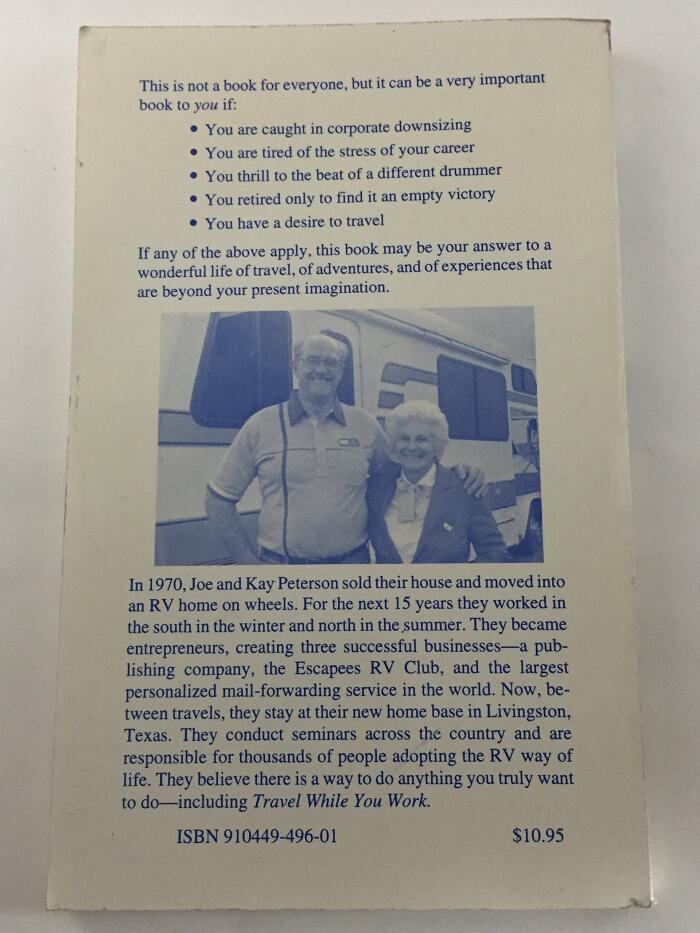 This is not a book for everyone, but it can be a very important
book to you if:
• You are caught in corporate downsizing
• You are tired of the stress of your career
• You thrill to the beat of a different drummer
• You retired only to find it an empty victory
• You have a desire to travel
If any of the above apply, this book may be your answer to a
wonderful life of travel, of adventures, and of experiences that
are beyond your present imagination.
In 1970, Joe and Kay Peterson sold their house and moved into
an RV home on wheels. For the next 15 years they worked in
the south in the winter and north in the summer. They became
entrepreneurs, creating three successful businesses—a pub-
lishing company, the Escapees RV Club, and the largest
personalized mail-forwarding service in the world. Now, be-
tween travels, they stay at their new home base in Livingston,
Texas. They conduct seminars across the country and are
responsible for thousands of people adopting the RV way of
life. They believe there is a way to do anything you truly want
to do—including Travel While You Work.
ISBN 910449-496-01 $10.95